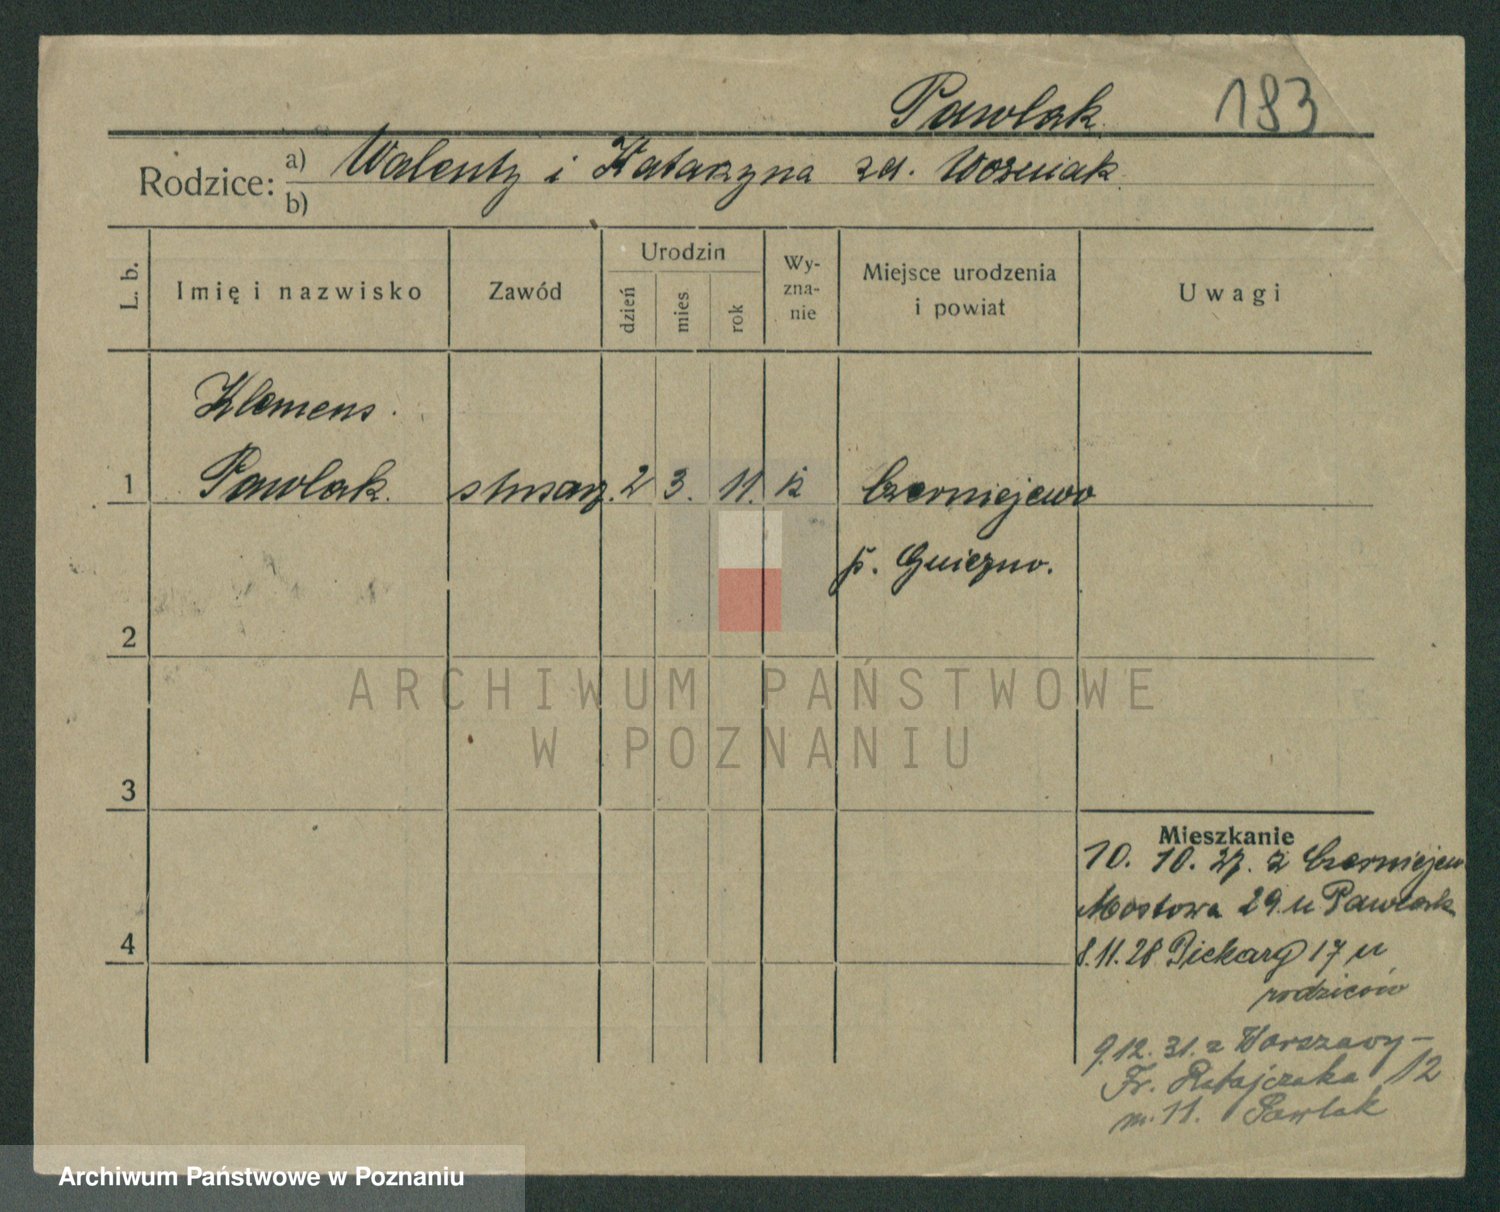 Pawlak 183
Rodzice: a) Walenty i Katarzyna zd. Wozniak
b)
L. b.
Imię i nazwisko
Zawód
Urodzin
dzień
mies
rok
Wy-
zna-
nie
Miejsce urodzenia
i powiat
Uwagi
Klemens
1 Pawlak. 2 3. 11. k Czerniejewo
p. Gniezno.
2
ARCHIWUM PAŃSTWOWE
W POZNANIU
3
Mieszkanie
10. 10. 27. z Czerniejew
Mostowa 29 u Pawlak
4
8.11.28 Piekary 17 u
rodziców
9.12.31. z Warszawy –
Fr. Ratajczaka 12
m. 11. Pawlak
Archiwum Państwowe w Poznaniu